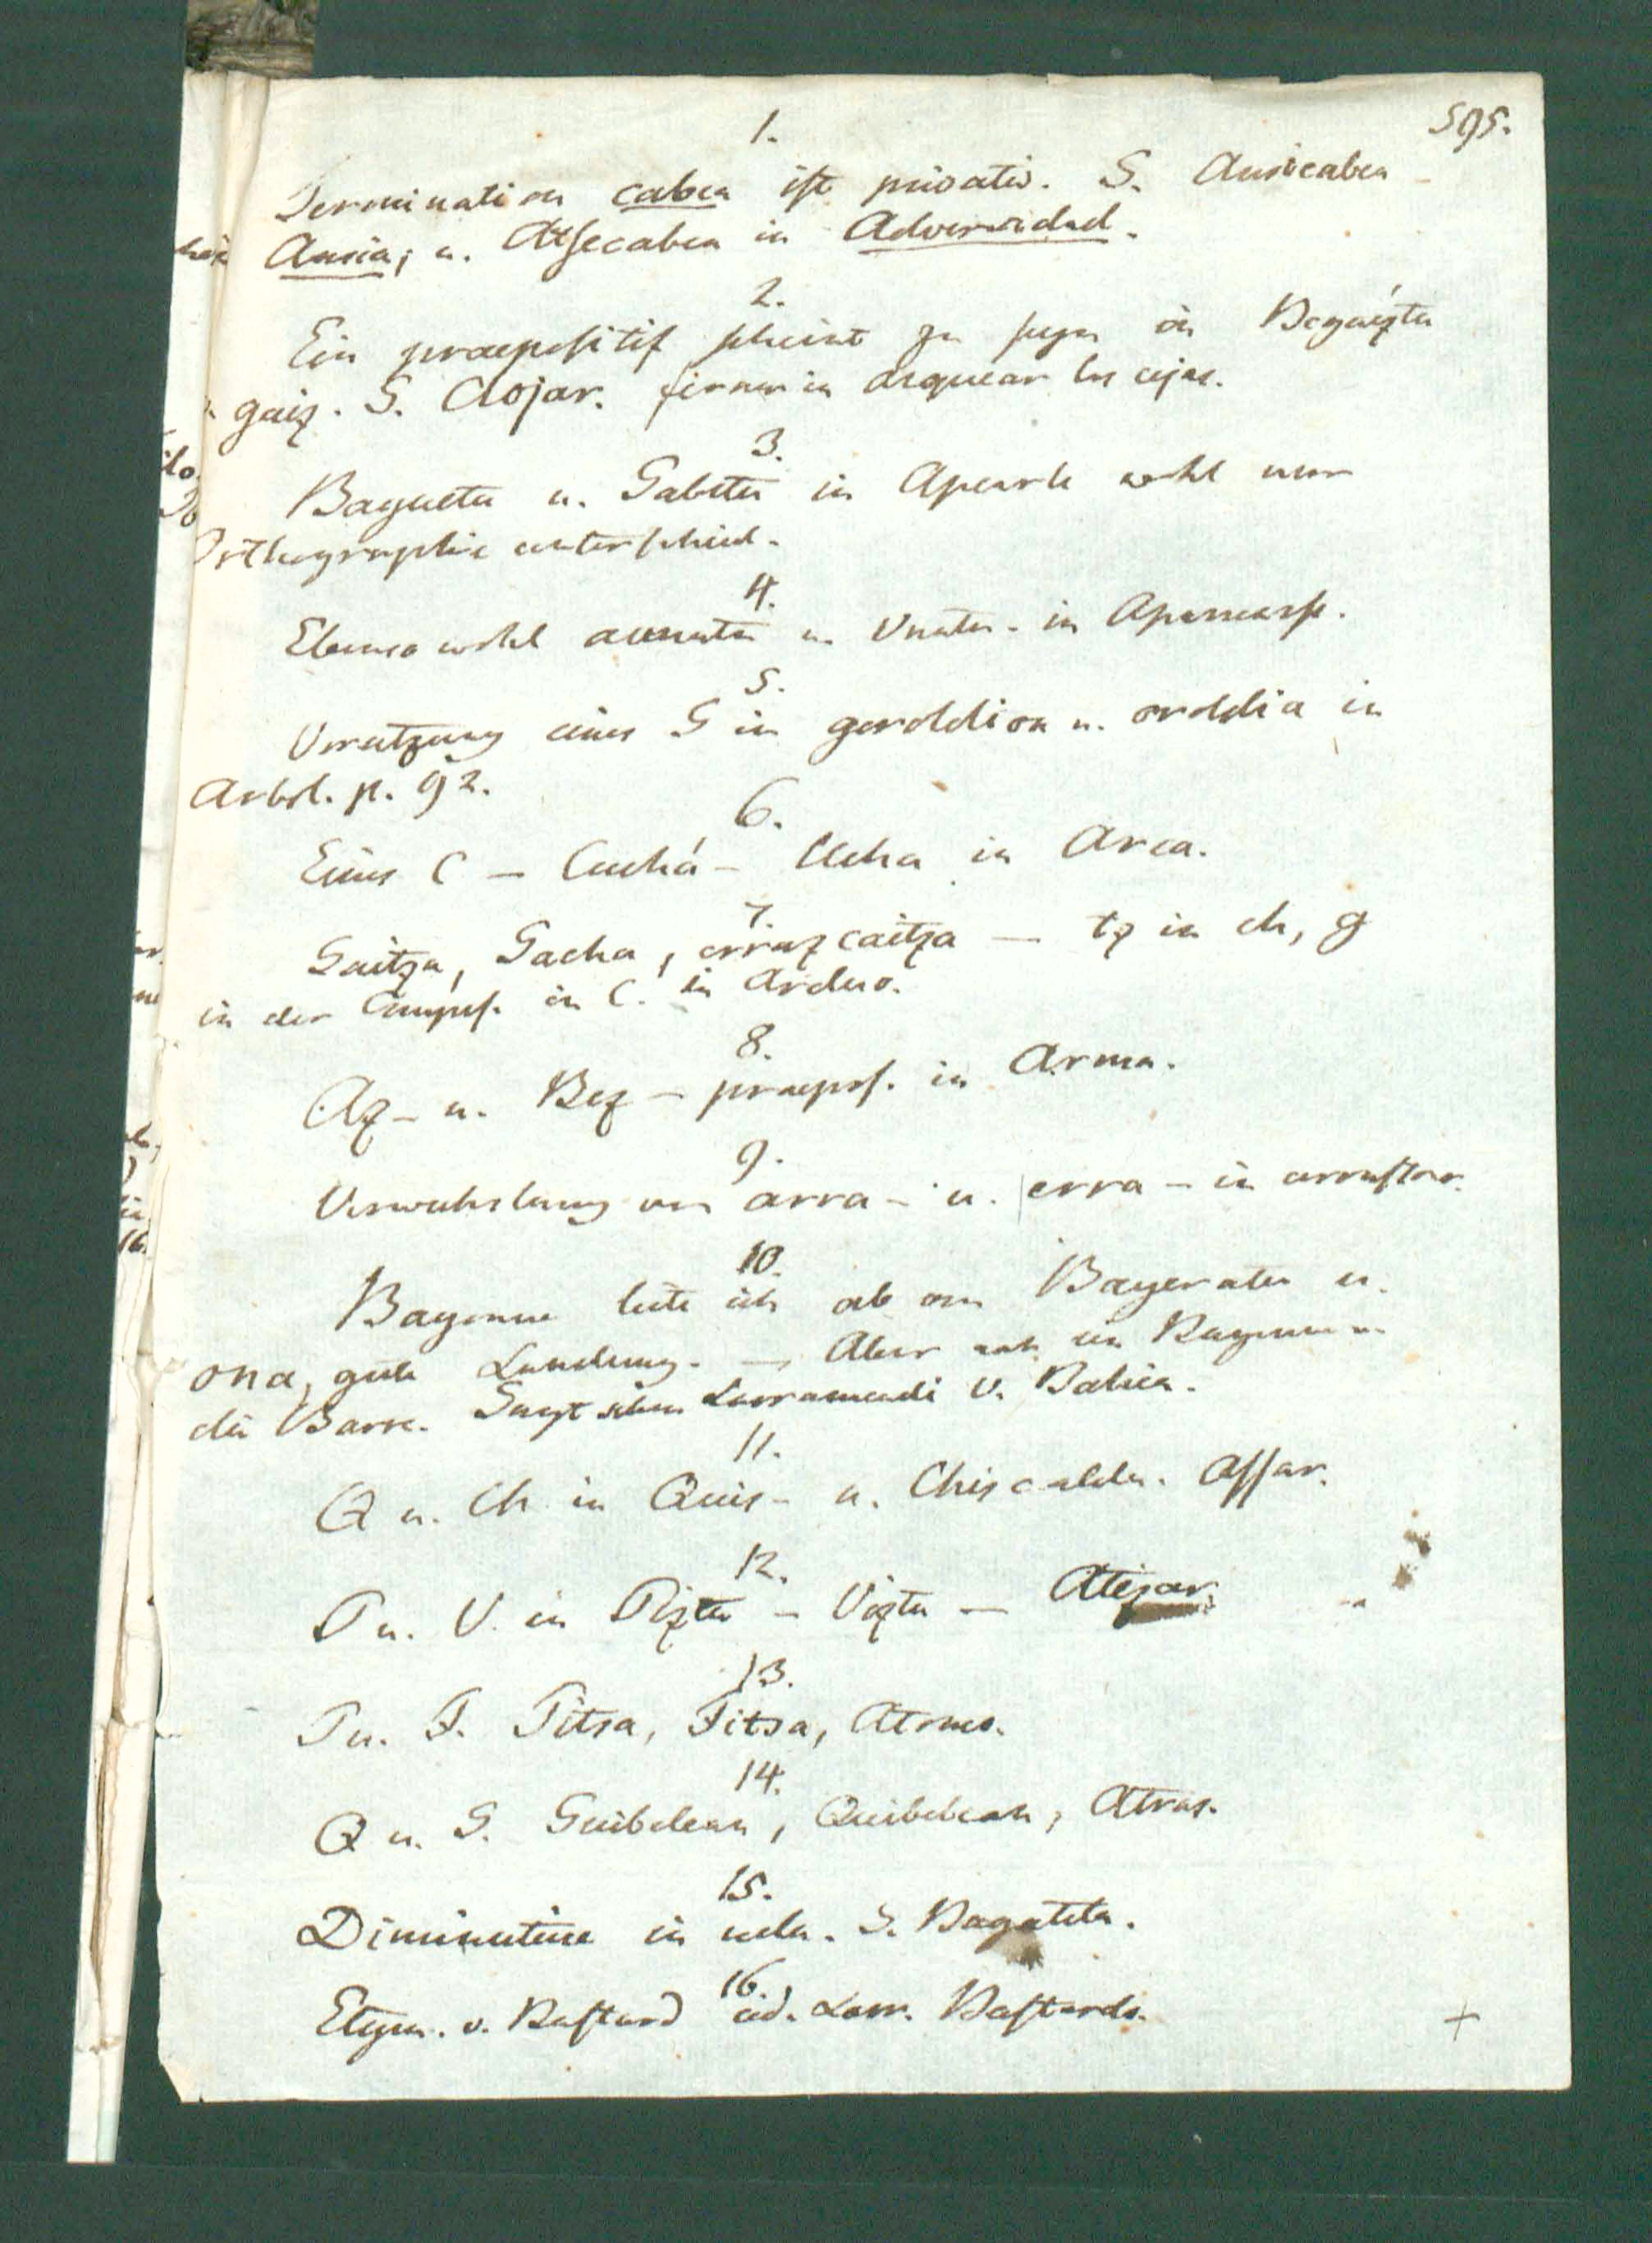 595.
1.
Termination cabea ist privativ. S. Ansicabea
Ansia; u. Atsecabea in Adversidad.
2.
Ein praepositif scheint zu seyn in Begaizta
gaiz. S. Aojar. ferner in arquear las cejas.
3.
Bagueta u. Gabeta in Apearle wohl nur
Orthographie unterschied.
4.
Ebenso wohl aunata u. Unata. in
5.
Vorsetzung eines G in gorddion u. orddia in
Arbol. p. 92.
6.
Eines C – Cuchá – Ucha in Arca.
7.
Gaitza, Gacha, erraz caitza — tz in ch, g
in der Compos. in C. in Arduo.
8.
Az – u. Bez – praepos. in Arma.
9.
Verwechslung von arra – u. erra – in arrastrar.
10.
Bayonne leite ich ab von u.
ona, gute Landung. — Aber auch
die Barre. Sagt schon Larramendi v. Bahia.
11.
Q u. Ch in Quis – u. Chiscaldu. Assar.
12.
P u. V. in Pizta – Vizta — Atizar.
13.
P u. F. Pitsa, Fitsa, Atomo.
14.
Q u. G. Guibelean, Quibelean, Atras.
15.
Diminutive in uela. S. Bagatela.
16.
Etym. v. Bastard ad. Larr. Bastardo.
+